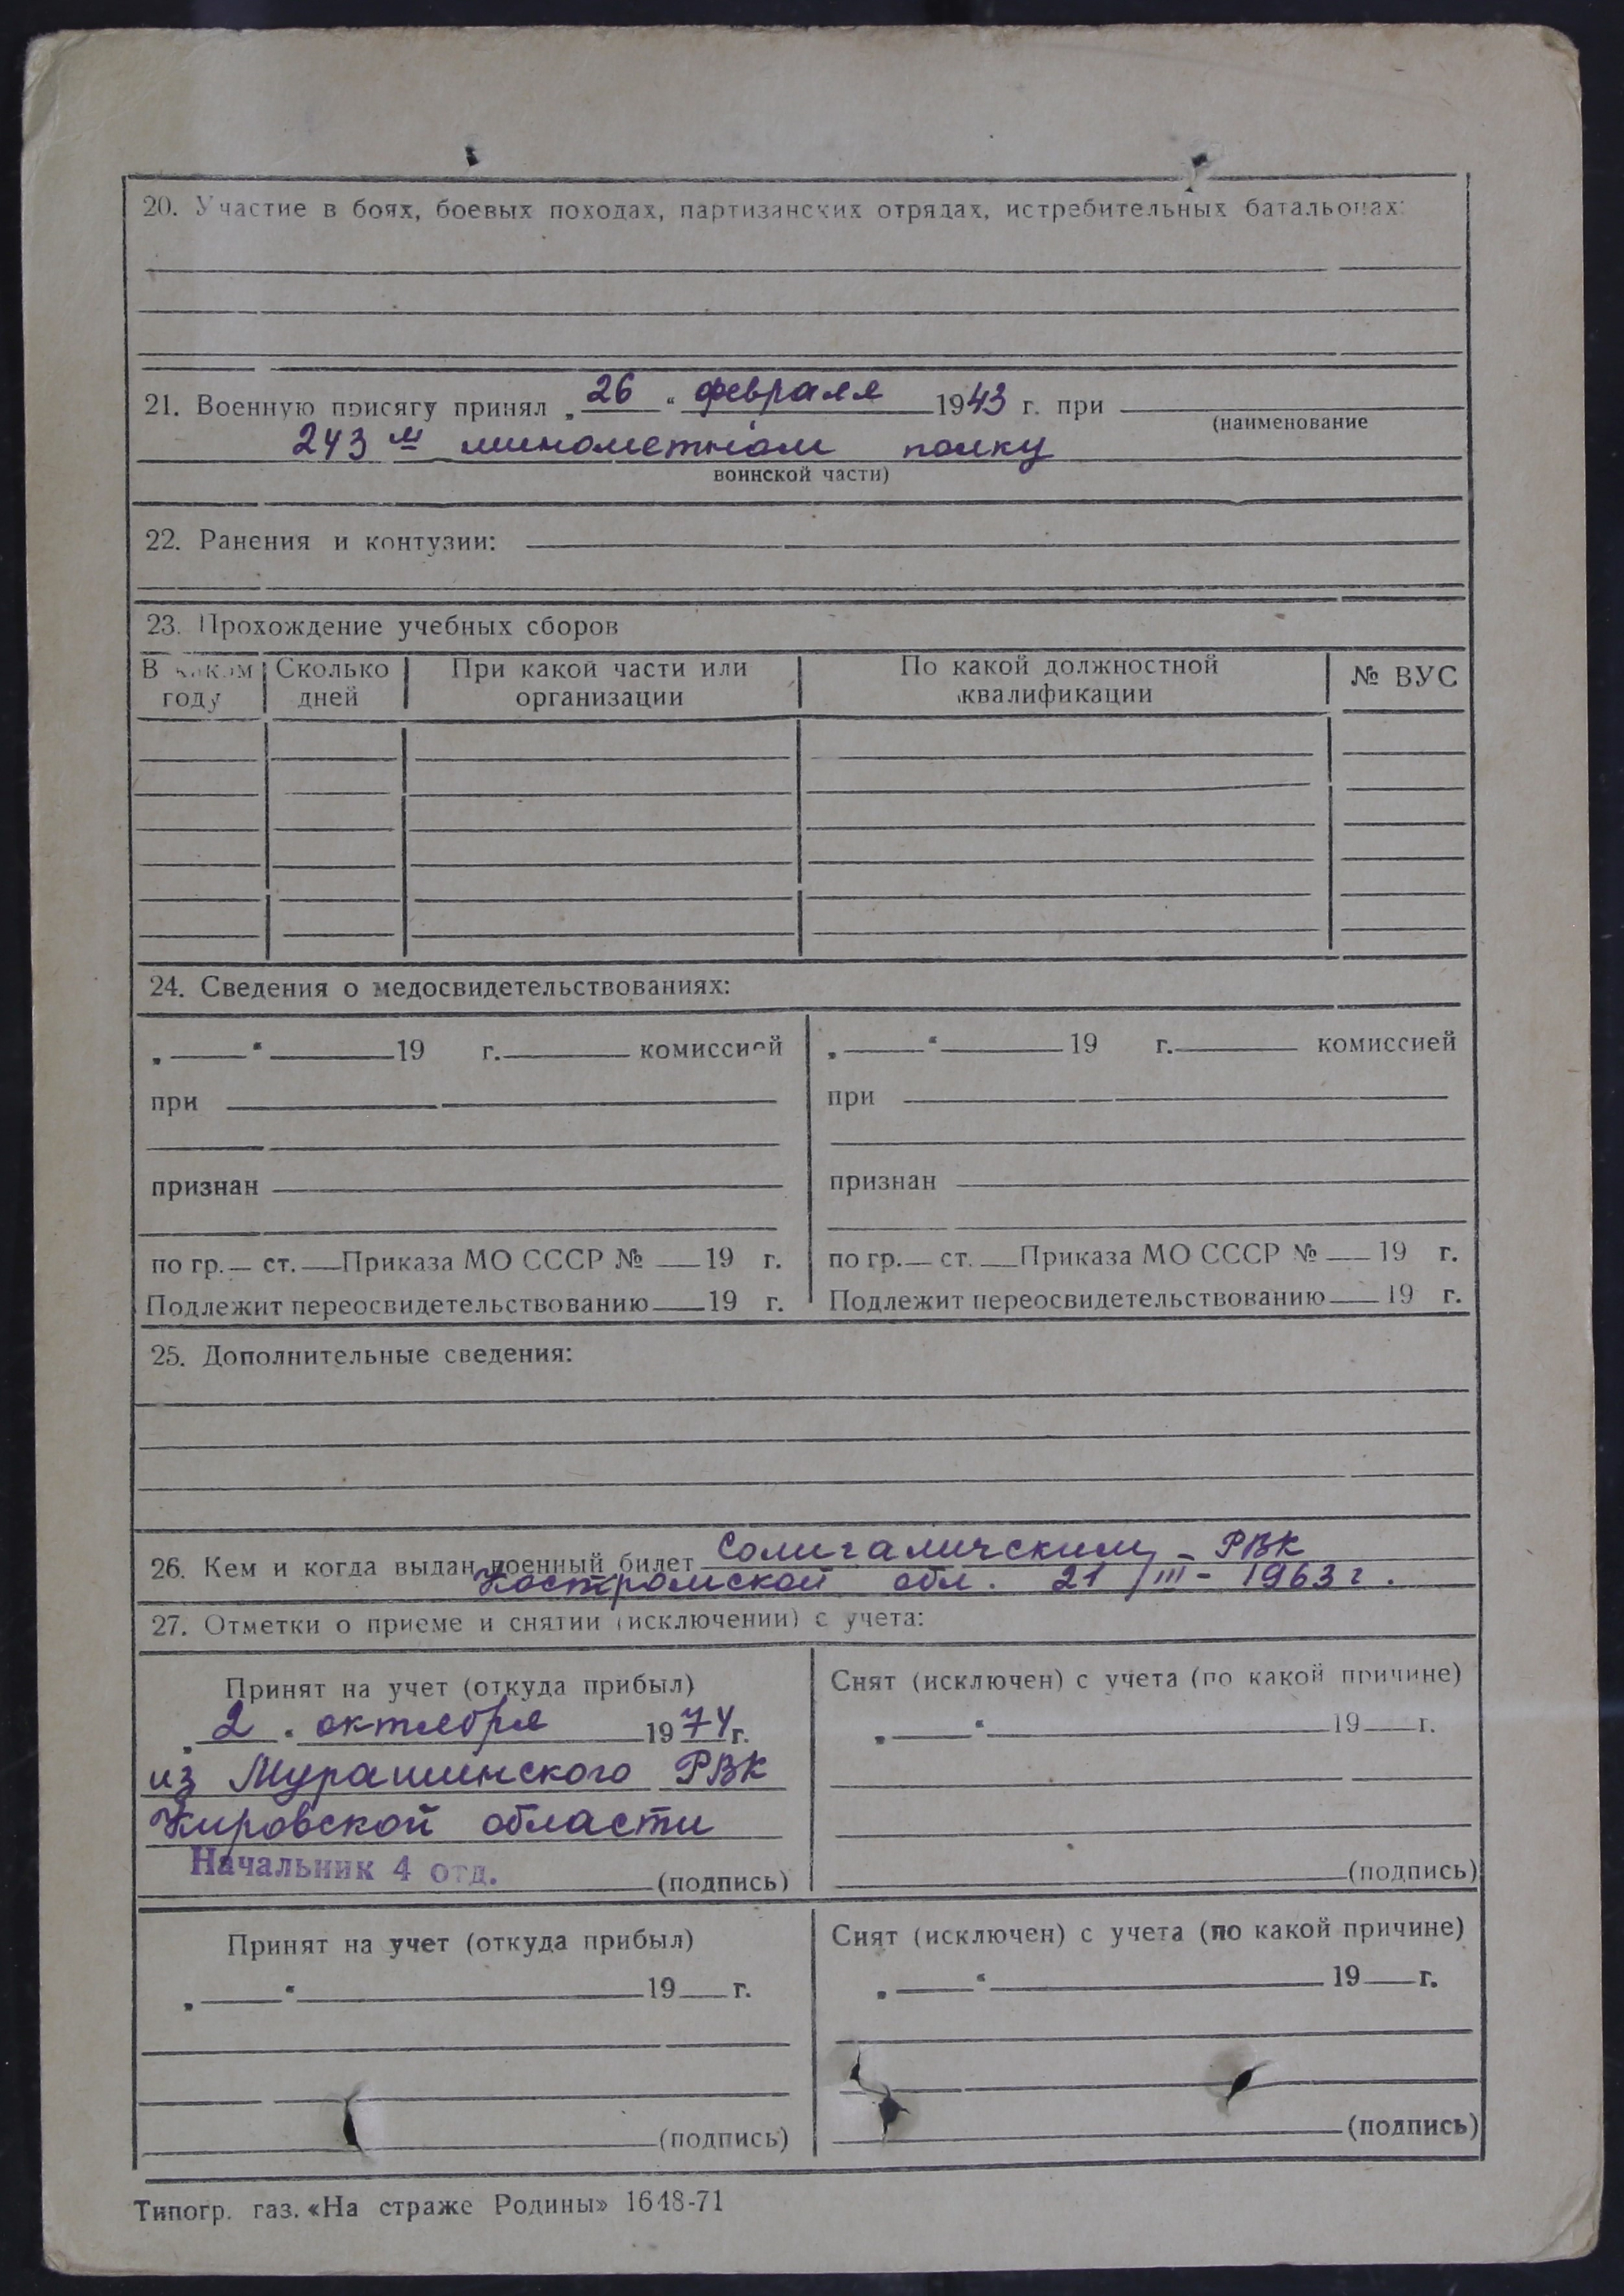 20. Участие в боях, боевых походах, партизанских отрядах, истребительных батальонах:
21. Военную присягу принял „26“ февраля 1943 г. при
(наименование
243 м минометном полку
воинской части)
22. Ранения и контузии:
23. Прохождение учебных сборов
В каком году | Сколько дней | При какой части или организации | По какой должностной квалификации | № ВУС
24. Сведения о медосвидетельствованиях:
„ “ 19 г. комиссией
при
признан
по гр. ст. Приказа МО СССР № 19 г.
Подлежит переосвидетельствованию 19 г.
„ “ 19 г. комиссией
при
признан
по гр. ст. Приказа МО СССР № 19 г.
Подлежит переосвидетельствованию 19 г.
25. Дополнительные сведения:
26. Кем и когда выдан военный билет Солигаличским - РВК
Костромской обл. 21/III - 1963 г.
27. Отметки о приеме и снятии (исключении) с учета:
Принят на учет (откуда прибыл)
„2“ октября 1974 г.
из Мурашинского РВК
Кировской области
Начальник 4 отд. (подпись)
Снят (исключен) с учета (по какой причине)
„ “ 19 г.
(подпись)
Принят на учет (откуда прибыл)
„ “ 19 г.
(подпись)
Снят (исключен) с учета (по какой причине)
„ “ 19 г.
(подпись)
Типогр. газ. «На страже Родины» 1648-71